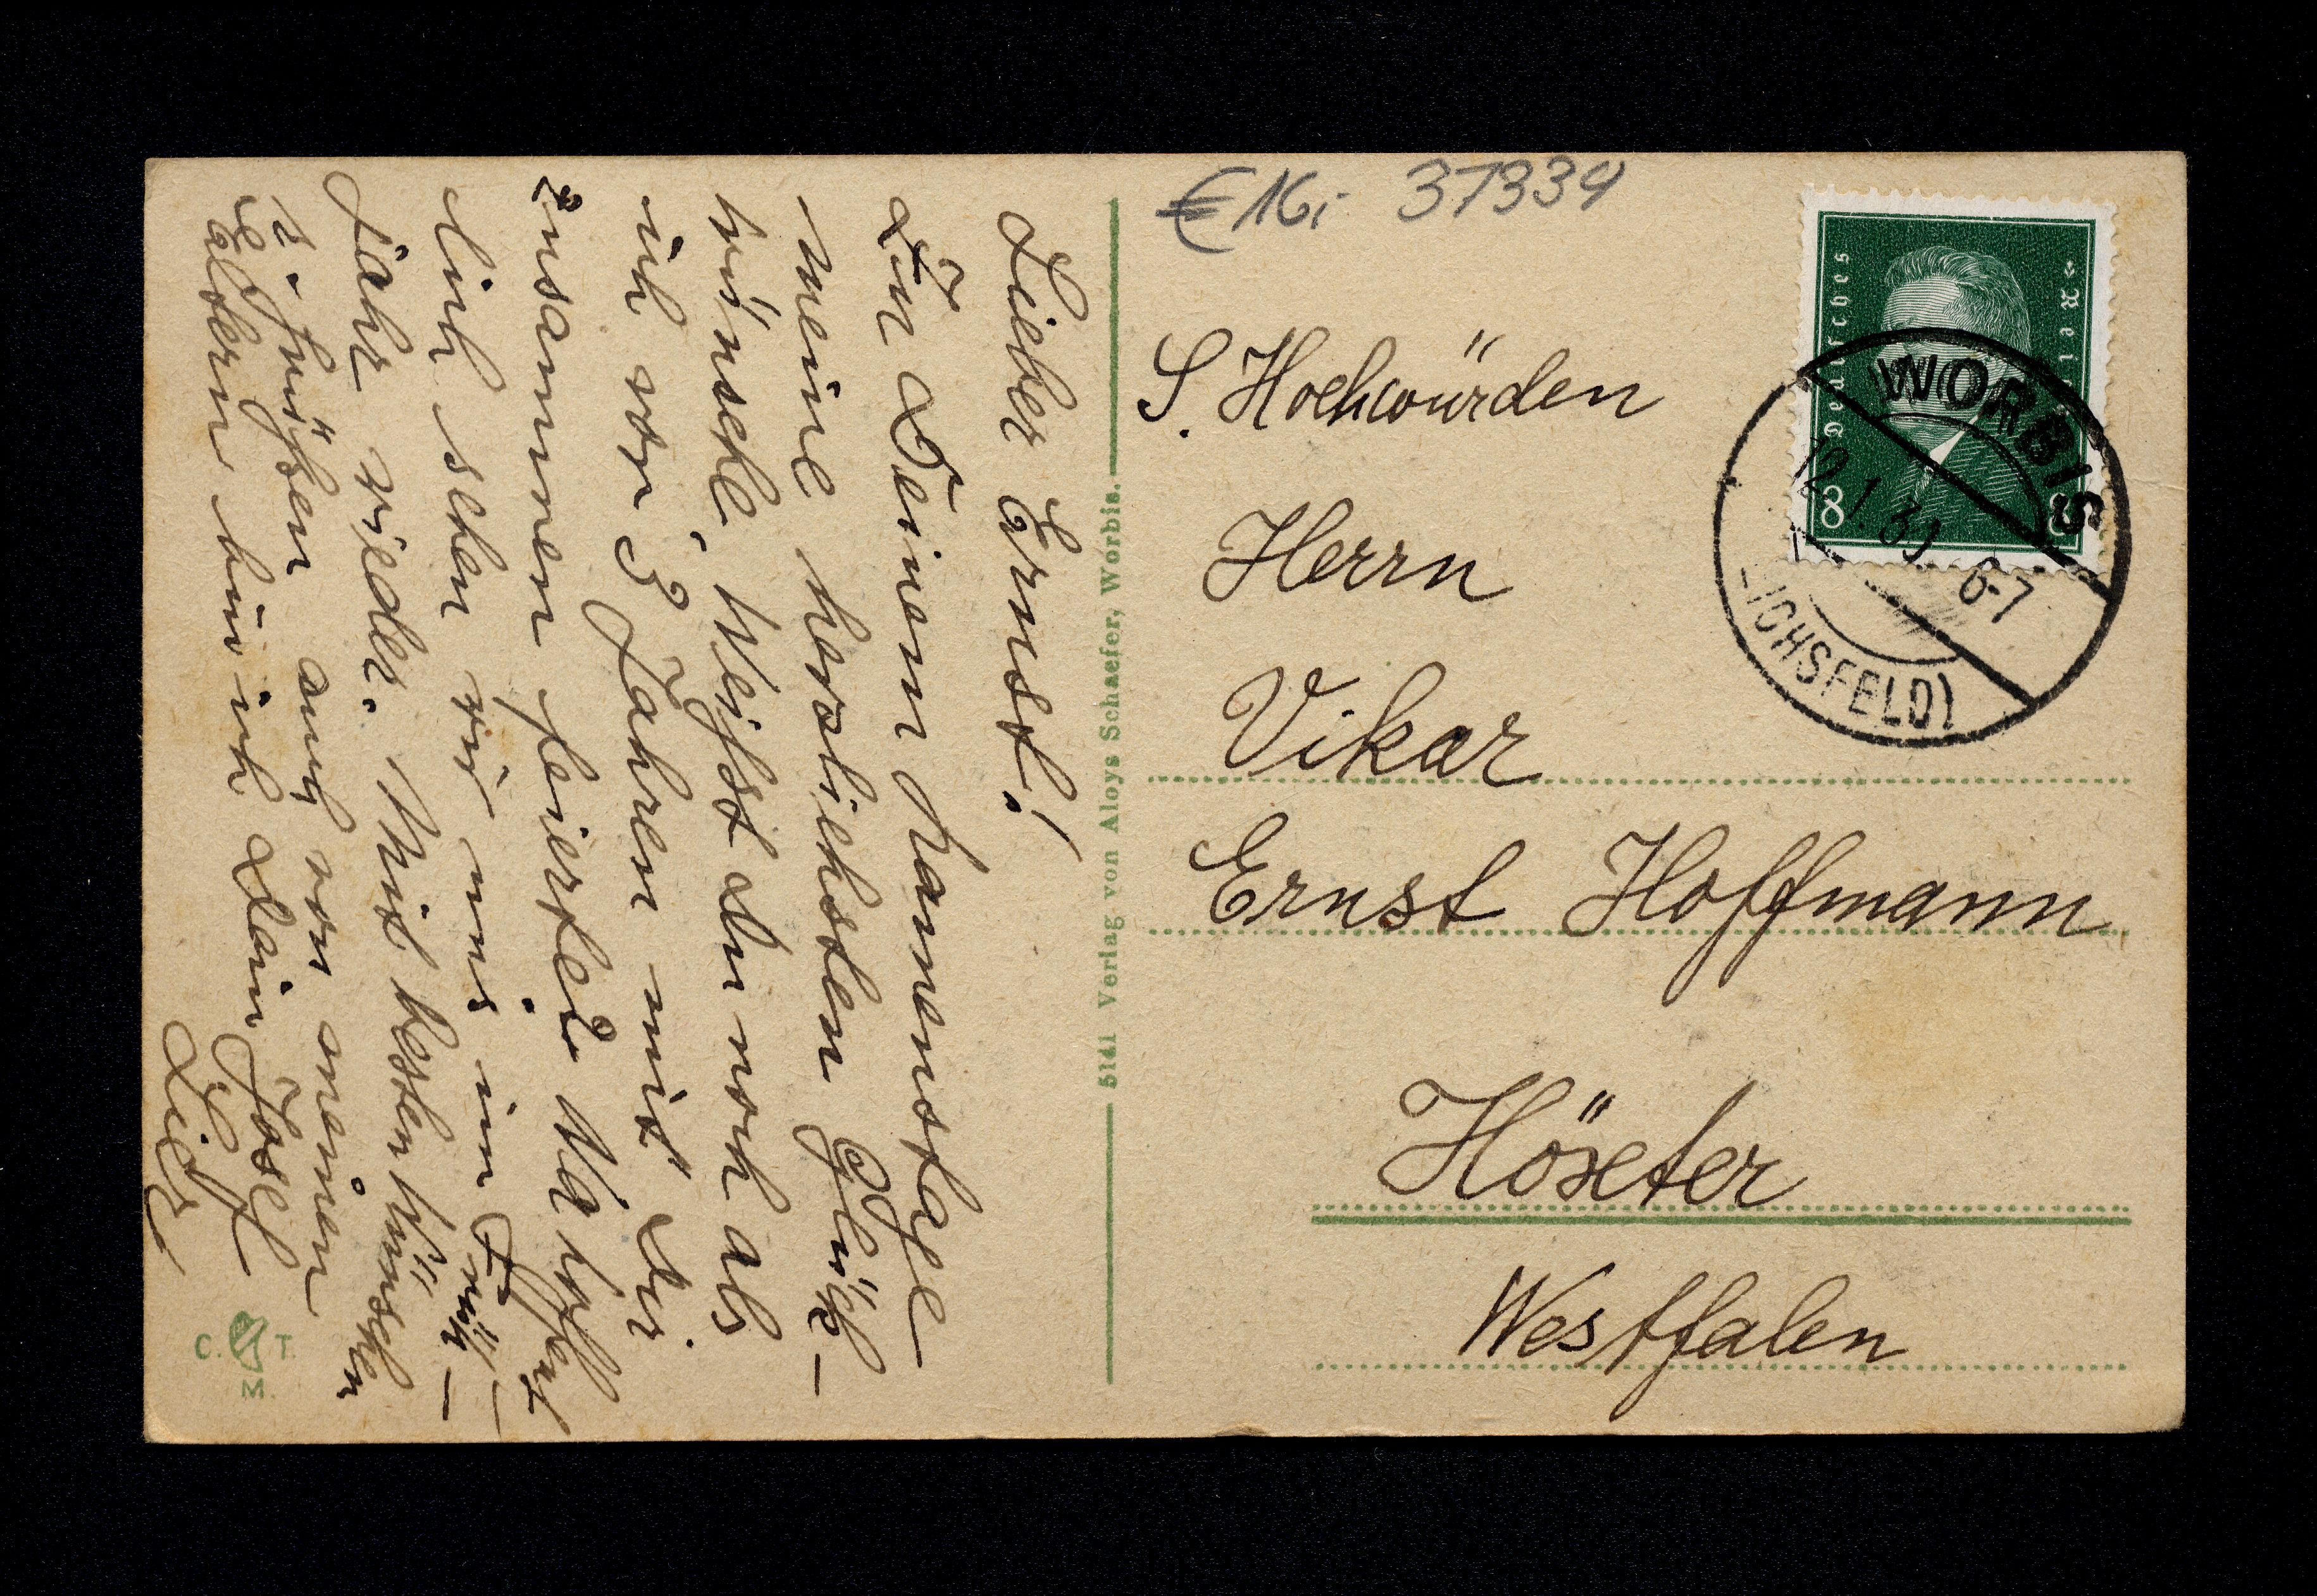 € 16,- 37339
Deutsches Reich
8 8
WORBIS
12.1.31. 6-7
(EICHSFELD)
S. Hochwürden
Herrn
Vikar
Ernst Hoffmann
Höxter
Westfalen
5141 Verlag von Aloys Schaefer, Worbis.
Lieber Ernst!
Zu Deinem Namenstage
meine herzlichsten Glück-
wünsche. Weißt du noch als
ich vor 3 Jahren mit Dir
zusammen feierte? Na hoffent-
lich sehen wir uns im Früh-
jahr wieder. Mit besten Wünschen
u. Grüßen auch von meinen
Eltern bin ich Dein Josef
C. T.
M.